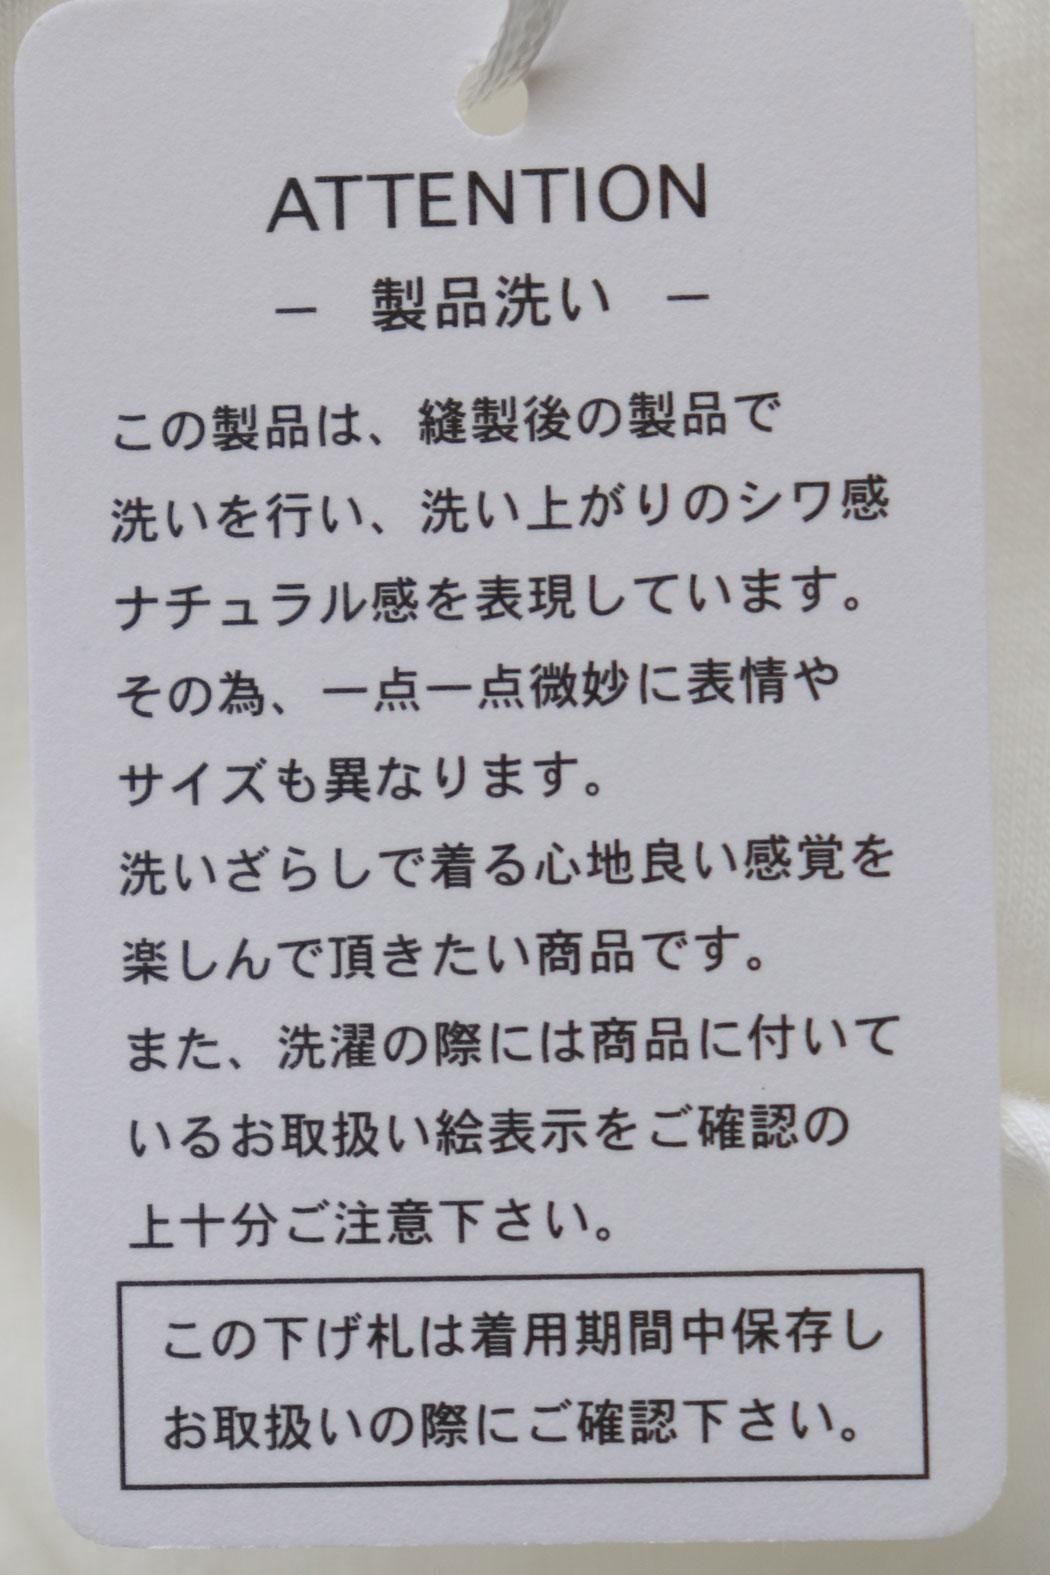 ATTENTION
－ 製品洗い －
この製品は、縫製後の製品で
洗いを行い、洗い上がりのシワ感
ナチュラル感を表現しています。
その為、一点一点微妙に表情や
サイズも異なります。
洗いざらしで着る心地良い感覚を
楽しんで頂きたい商品です。
また、洗濯の際には商品に付いて
いるお取扱い絵表示をご確認の
上十分ご注意下さい。
この下げ札は着用期間中保存し
お取扱いの際にご確認下さい。